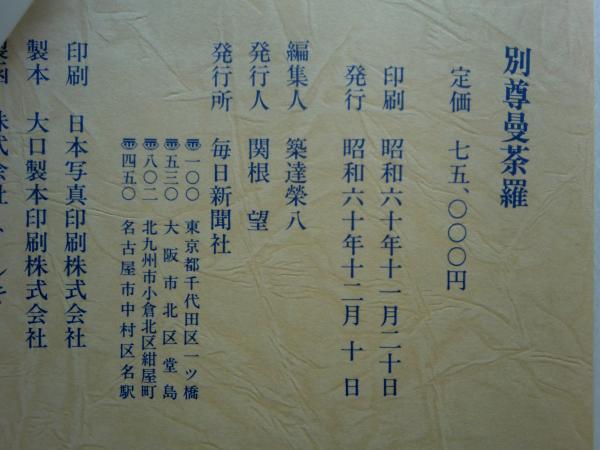 別尊曼荼羅
定価 七五、〇〇〇円
印刷 昭和六十年十一月二十日
発行 昭和六十年十二月十日
編集人 築達榮八
発行人 関根望
発行所 毎日新聞社
〠一〇〇 東京都千代田区一ツ橋
〠五三〇 大阪市北区堂島
〠八〇二 北九州市小倉北区紺屋町
〠四五〇 名古屋市中村区名駅
印刷 日本写真印刷株式会社
製本 大口製本印刷株式会社
製函 株式会社